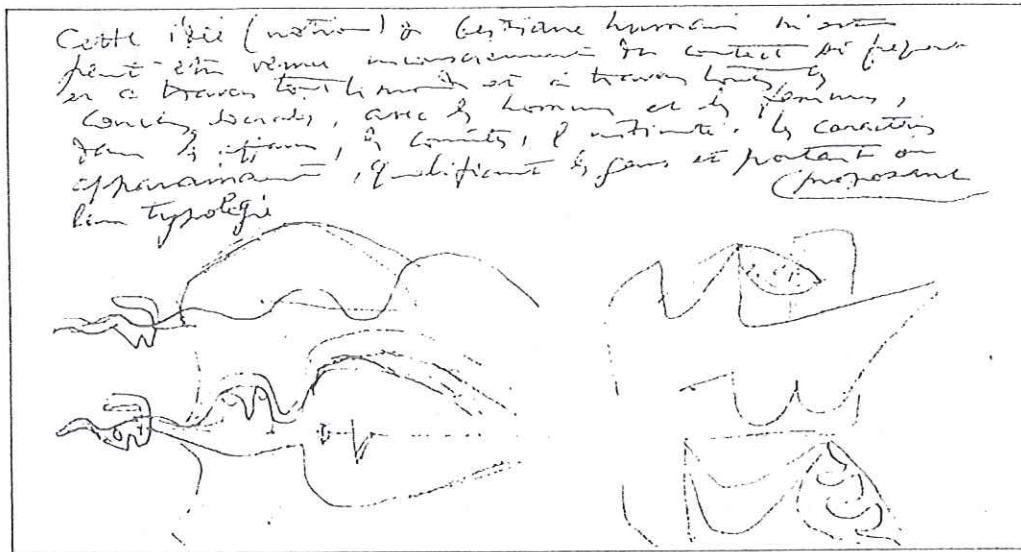 Cette idée (notion) de bestiaire humain m'est
peut-être venue inconsciemment du contact si fréquent
et à travers tout le monde et à travers toutes les
couches sociales, avec les hommes et les femmes,
dans les affaires, les comités, l'intimité. Les caractères
apparaissent, qualifiant les gens et portant ou
proposant
leur typologie